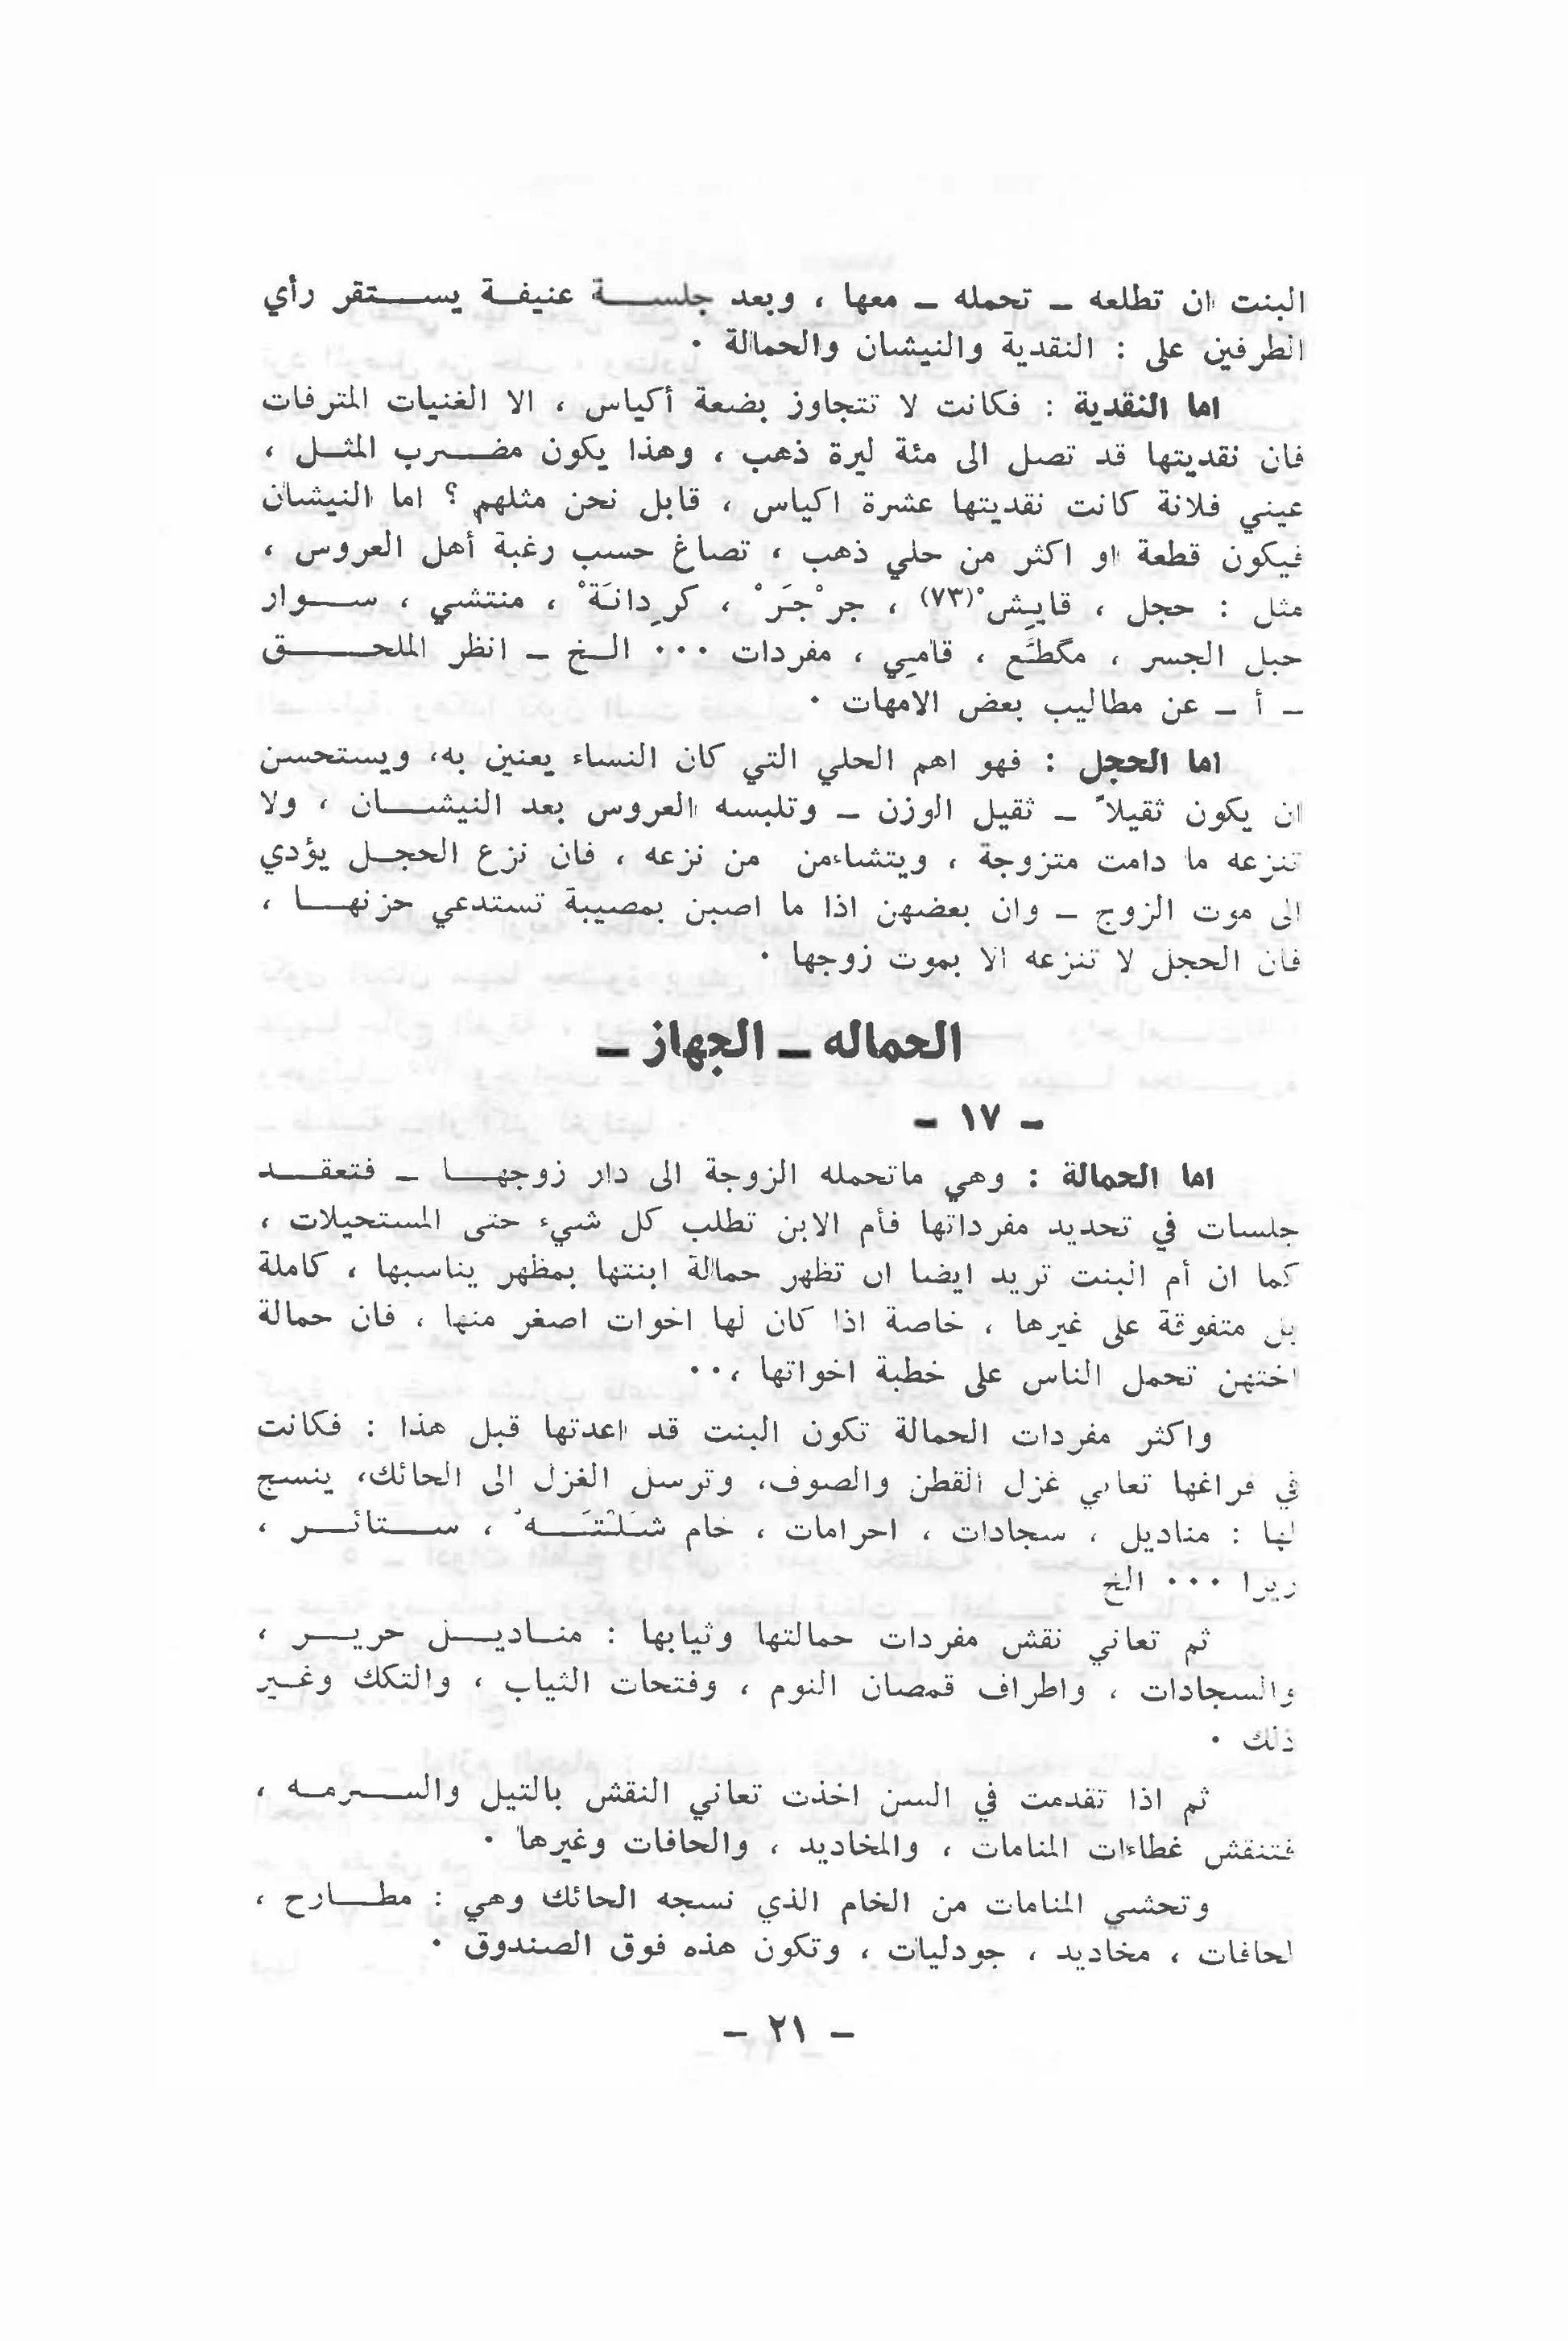 البنت ان تطلعه ـ تحمله ـ معها ، وبعد جلسة عنيفة يستقر رأي
الطرفين على : النقدية والنيشان والحمالة .
اما النقدية : فكانت لا تتجاوز بضعة أكياس ، الا الغنيات المترفات
فان نقديتها قد تصل الى مئة ليرة ذهب ، وهذا يكون مضرب المثل ،
عيني فلانة كانت نقديتها عشرة اكياس ، قابل نحن مثلهم ؟ اما النيشان
فيكون قطعة او اكثر من حلي ذهب ، تصاغ حسب رغبة أهل العروس ،
مثل : حجل ، قايِش°(٧٣) ، جر°جَر° ، كرِدانَة° ، منتشي ، سوار
حبل الجسر ، مگطَّع ، قامِي ، مفردات ... الخ ـ انظر الملحق
ـ أ ـ عن مطاليب بعض الامهات .
اما الحجل : فهو اهم الحلي التي كان النساء يعنين به، ويستحسن
ان يكون ثقيلاً ـ ثقيل الوزن ـ وتلبسه العروس بعد النيشان ، ولا
تنزعه ما دامت متزوجة ، ويتشاءمن من نزعه ، فان نزع الحجل يؤدي
الى موت الزوج ـ وان بعضهن اذا ما اصبن بمصيبة تستدعي حزنها ،
فان الحجل لا تنزعه الا بموت زوجها .
الحماله ـ الجهاز ـ
ـ ١٧ ـ
اما الحمالة : وهي ماتحمله الزوجة الى دار زوجها ـ فتعقد
جلسات في تحديد مفرداتها فأم الابن تطلب كل شيء حتى المستحيلات ،
كما ان أم البنت تريد ايضا ان تظهر حمالة ابنتها بمظهر يناسبها ، كاملة
بل متفوقة على غيرها ، خاصة اذا كان لها اخوات اصغر منها ، فان حمالة
اختهن تحمل الناس على خطبة اخواتها ،..
واكثر مفردات الحمالة تكون البنت قد اعدتها قبل هذا : فكانت
في فراغها تعاني غزل القطن والصوف، وترسل الغزل الى الحائك، ينسج
لها : مناديل ، سجادات ، احرامات ، خام شَلْتَه° ، ستائر ،
زيرا ... الخ
ثم تعاني نقش مفردات حمالتها وثيابها : مناديل حرير ،
والسجادات ، واطراف قمصان النوم ، وفتحات الثياب ، والتكك وغير
ذلك .
ثم اذا تقدمت في السن اخذت تعاني النقش بالتيل والسرمه ،
فتنقش غطاءات المنامات ، والمخاديد ، والحافات وغيرها .
وتحشي المنامات من الخام الذي نسجه الحائك وهي : مطارح ،
لحافات ، مخاديد ، جودليات ، وتكون هذه فوق الصندوق .
ـ ٢١ ـ